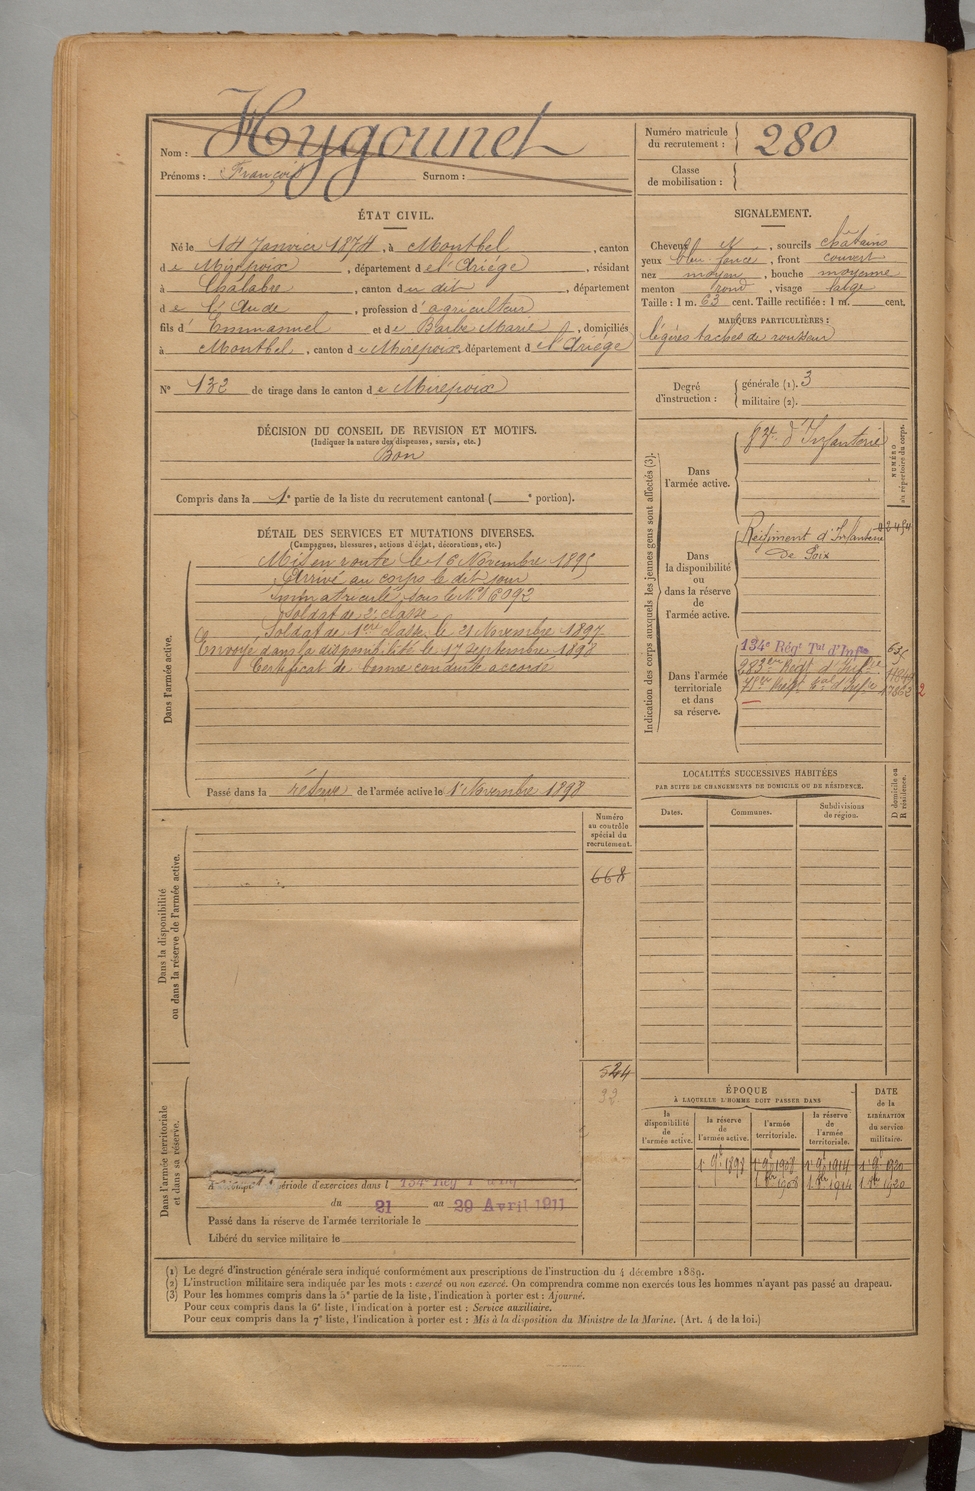 Hygounet
Nom :
Prénoms : François Surnom :
Numéro matricule
du recrutement : 280
Classe
de mobilisation :
ÉTAT CIVIL.
Né le 14 Janvier 1874, à Montbel, canton
de Mirepoix, département de l'Ariége, résidant
à Chalabre, canton du dit, département
de l'Aude, profession d'agriculteur
fils d'Emmanuel et de Barbe Marie, domiciliés
à Montbel, canton de Mirepoix, département de l'Ariége
N° 132 de tirage dans le canton de Mirepoix
DÉCISION DU CONSEIL DE REVISION ET MOTIFS.
(Indiquer la nature des dispenses, sursis, etc.)
Bon
Compris dans la 1e partie de la liste du recrutement cantonal ( e portion).
SIGNALEMENT.
Cheveux, sourcils châtains
yeux bleu foncé, front couvert
nez moyen, bouche moyenne
menton rond, visage large
Taille : 1 m. 63 cent. Taille rectifiée : 1 m. cent.
MARQUES PARTICULIÈRES :
légères taches de rousseur
Degré
d'instruction :
générale (1). 3
militaire (2).
DÉTAIL DES SERVICES ET MUTATIONS DIVERSES.
(Campagnes, blessures, actions d'éclat, décorations, etc.)
Dans l'armée active.
Mis en route le 16 Novembre 1895
Arrivé au corps le dit jour
immatriculé sous le N° 6092
Soldat de 2e classe
Soldat de 1ère classe le 21 Novembre 1897
Envoyé dans la disponibilité le 17 septembre 1898
Certificat de bonne conduite accordé
Passé dans la réserve de l'armée active le 1 Novembre 1898
Indication des corps auxquels les jeunes gens sont affectés (3).
NUMÉRO
au répertoire du corps.
Dans
l'armée active.
83e d'Infanterie
Dans
la disponibilité
ou
dans la réserve
de
l'armée active.
Régiment d'Infanterie
de Foix
Dans l'armée
territoriale
et dans
sa réserve.
134e Régt Tal d'Infie
283ème Régt d'Infie
Dans la disponibilité
ou dans la réserve de l'armée active.
Numéro
au contrôle
spécial du
recrutement.
668
524
32
Dans l'armée territoriale
et dans sa réserve.
période d'exercices dans l 134e Rég
du 21 au 29 Avril 1911
Passé dans la réserve de l'armée territoriale le
Libéré du service militaire le
LOCALITÉS SUCCESSIVES HABITÉES
PAR SUITE DE CHANGEMENTS DE DOMICILE OU DE RÉSIDENCE.
Dates.
Communes.
Subdivisions
de région.
D domicile ou
R résidence.
ÉPOQUE
À LAQUELLE L'HOMME DOIT PASSER DANS
DATE
de la
LIBÉRATION
du service
militaire.
la
disponibilité
de
l'armée active.
la réserve
de
l'armée active.
l'armée
territoriale.
la réserve
de
l'armée
territoriale.
1 9e 1898 1 9e 1908 1 9e 1914 1 9e 1920
(1) Le degré d'instruction générale sera indiqué conformément aux prescriptions de l'instruction du 4 décembre 1889.
(2) L'instruction militaire sera indiquée par les mots : exercé ou non exercé. On comprendra comme non exercés tous les hommes n'ayant pas passé au drapeau.
(3) Pour les hommes compris dans la 5e partie de la liste, l'indication à porter est : Ajourné.
Pour ceux compris dans la 6e liste, l'indication à porter est : Service auxiliaire.
Pour ceux compris dans la 7e liste, l'indication à porter est : Mis à la disposition du Ministre de la Marine. (Art. 4 de la loi.)